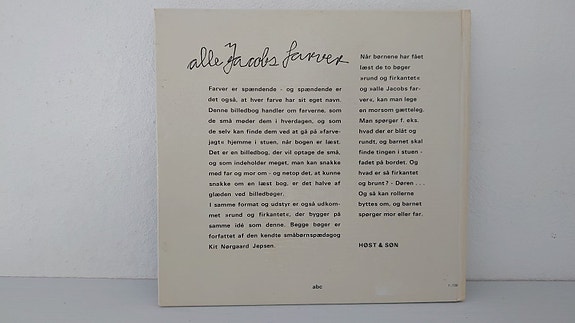 alle Jacobs farver
Farver er spændende - og spændende er
det også, at hver farve har sit eget navn.
Denne billedbog handler om farverne, som
de små møder dem i hverdagen, og som
de selv kan finde dem ved at gå på »farve-
jagt« hjemme i stuen, når bogen er læst.
Det er en billedbog, der vil optage de små,
og som indeholder meget, man kan snakke
med far og mor om - og netop det, at kunne
snakke om en læst bog, er det halve af
glæden ved billedbøger.
I samme format og udstyr er også udkom-
met »rund og firkantet«, der bygger på
samme idé som denne. Begge bøger er
forfattet af den kendte småbørnspædagog
Kit Nørgaard Jepsen.
Når børnene har fået
læst de to bøger
»rund og firkantet«
og »alle Jacobs far-
ver«, kan man lege
en morsom gætteleg.
Man spørger f. eks.
hvad der er blåt og
rundt, og barnet skal
finde tingen i stuen -
fadet på bordet. Og
hvad er så firkantet
og brunt? - Døren . . .
Og så kan rollerne
byttes om, og barnet
spørger mor eller far.
HØST & SØN
abc